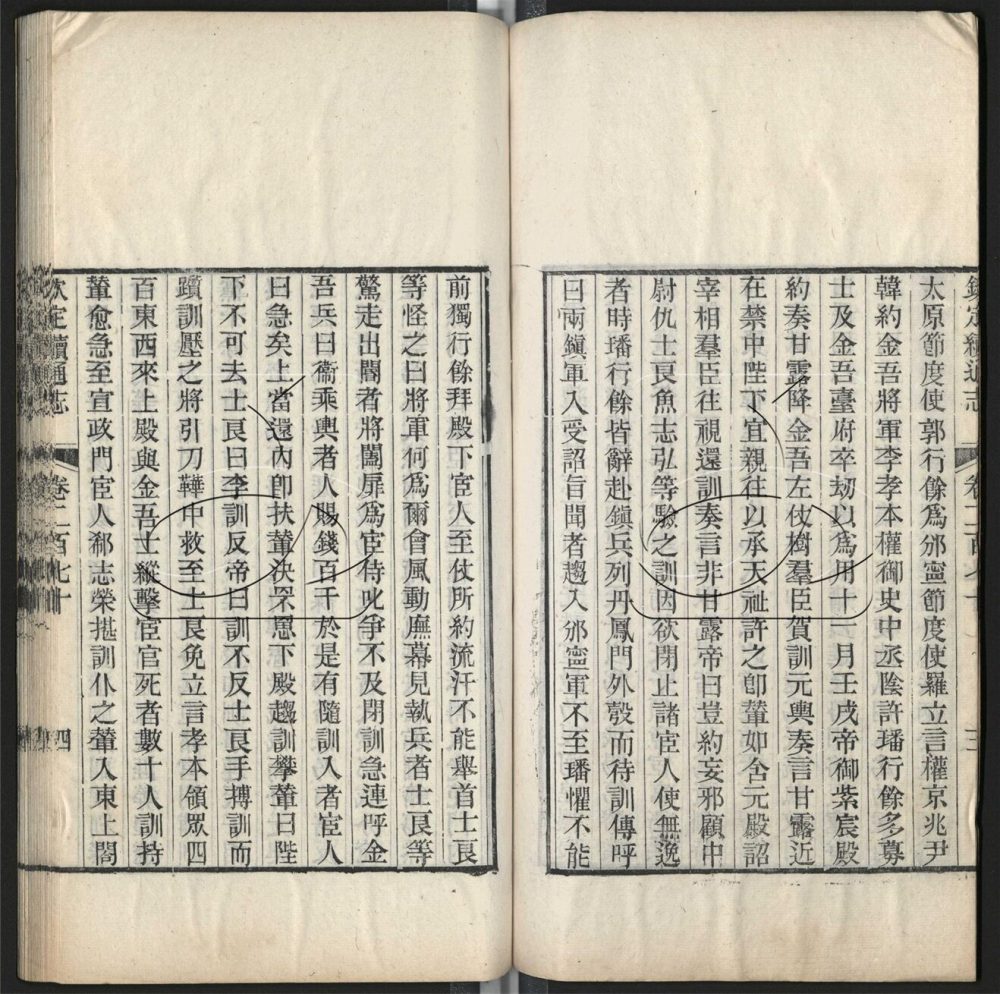 欽定續通志 卷二百七十 三
太原節度使郭行餘爲邠寧節度使羅立言權京兆尹
韓約金吾將軍李孝本權御史中丞陰許璠行餘多募
士及金吾臺府卒劫以爲用十一月壬戌帝御紫宸殿
約奏甘露降金吾左仗樹羣臣賀訓元輿奏言甘露近
在禁中陛下宜親往以承天祉許之卽輦如含元殿詔
宰相羣臣往視還訓奏言非甘露帝曰豈約妄邪顧中
尉仇士良魚志弘等驗之訓因欲閉止諸宦人使無逸
者時璠行餘皆辭赴鎭兵列丹鳳門外彀而待訓傳呼
曰兩鎭軍入受詔旨聞者趨入邠寧軍不至璠懼不能
前獨行餘拜殿下宦人至仗所約流汗不能舉首士良
等怪之曰將軍何爲爾會風動廡幕見執兵者士良等
驚走出閽者將闔扉爲宦侍叱爭不及閉訓急連呼金
吾兵曰衞乘輿者人賜錢百千於是有隨訓入者宦人
曰急矣上當還內卽扶輦決罘罳下殿趨訓攀輦曰陛
下不可去士良曰李訓反帝曰訓不反士良手搏訓而
躓訓壓之將引刀鞾中救至士良免立言孝本領眾四
百東西來上殿與金吾士縱擊宦官死者數十人訓持
輦愈急至宣政門宦人郗志榮揕訓仆之輦入東上閤
欽定續通志 卷二百七十 四